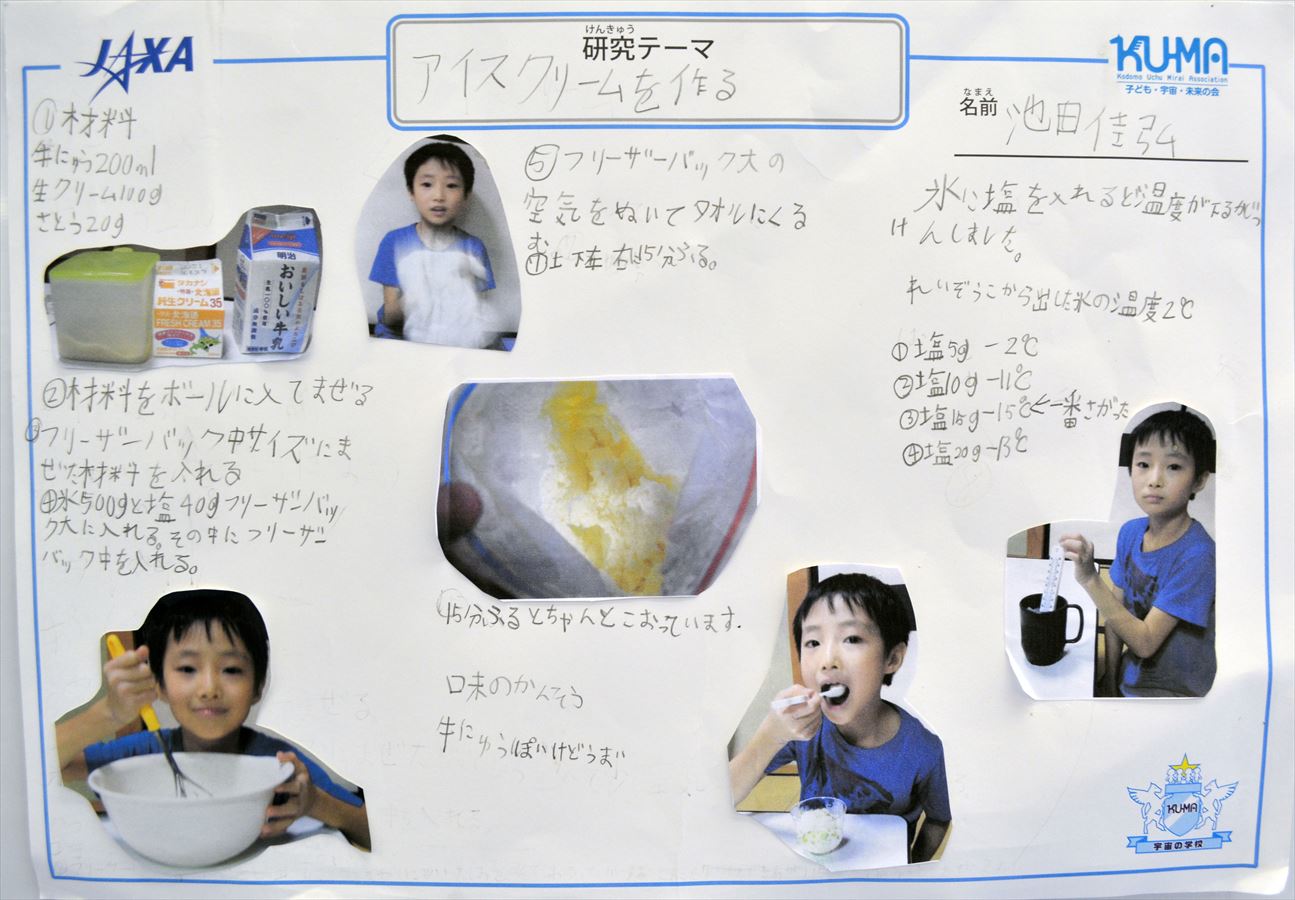 JAXA
けんきゅう
研究テーマ
アイスクリームを作る
KU-MA
Kodomo Uchu Mirai Association
子ども・宇宙・未来の会
なまえ
名前
池田佳弘
①材料
牛にゅう200ml
生クリーム100g
さとう20g
タカナシ
純生クリーム35
北海道
FRESH CREAM 35
明治
おいしい牛乳
②材料をボールに入てまぜる
③フリーザーバック中サイズにま
ぜた材料を入れる
④氷500gと塩40gフリーザーバッ
ク大に入れる。その中にフリーザー
バック中を入れる。
⑤フリーザーバック大の
空気をぬいてタオルにくる
む
15分ふる。
15分ふるとちゃんとこおっています.
口未のかんそう
牛にゅうぽいけどうまい
氷に塩を入れるど温度が
けんしました。
れいぞうこから出した氷の温度2℃
①塩5g -2℃
②塩10g -11℃
③塩15g -15℃←一番さがった
④塩20g -13℃
KU-MA
宇宙の学校